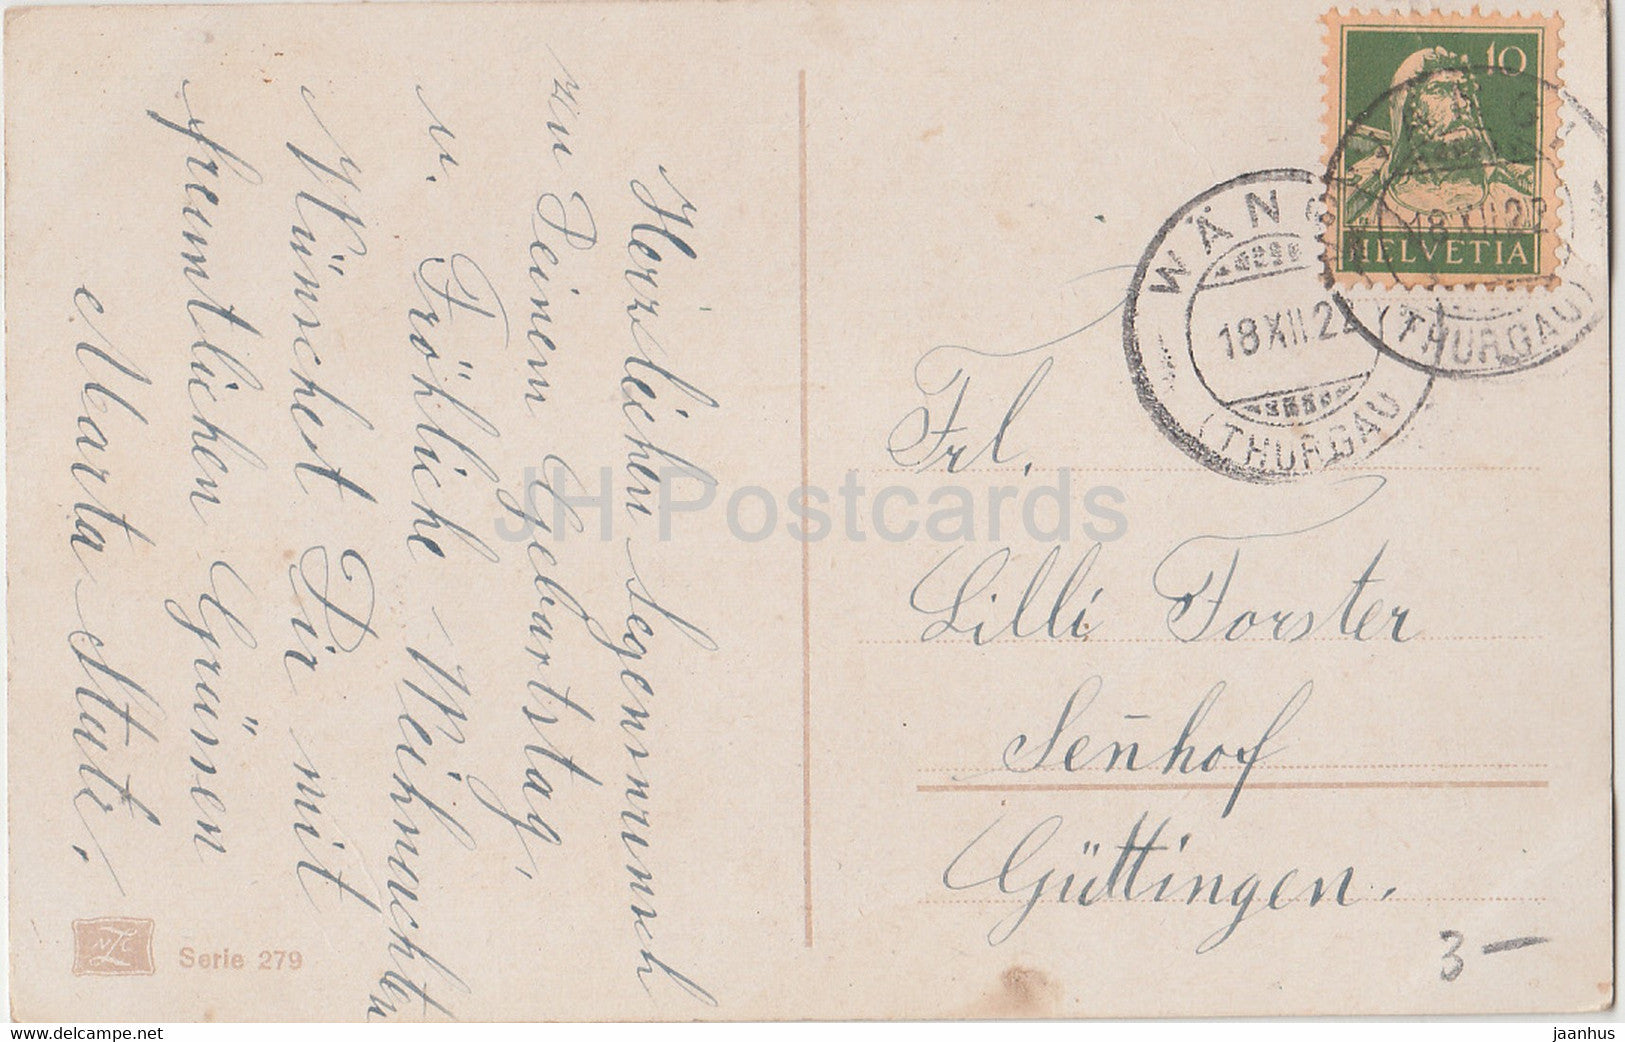 Herzlichen Segenwunsch
zu Deinem Geburtstag,
u. Fröhliche Weihnachten
Wünschet Dir mit
freuntlichen Grüssen
Marta Stutz.
Serie 279
10
HELVETIA
WÄNGI
18 XII 22
(THURGAU)
WÄNGI
18 XII 22
(THURGAU)
Frl.
Lilli Forster
Sen̄hof
Güttingen.
3 —
JH Postcards
www.delcampe.net
jaanhus